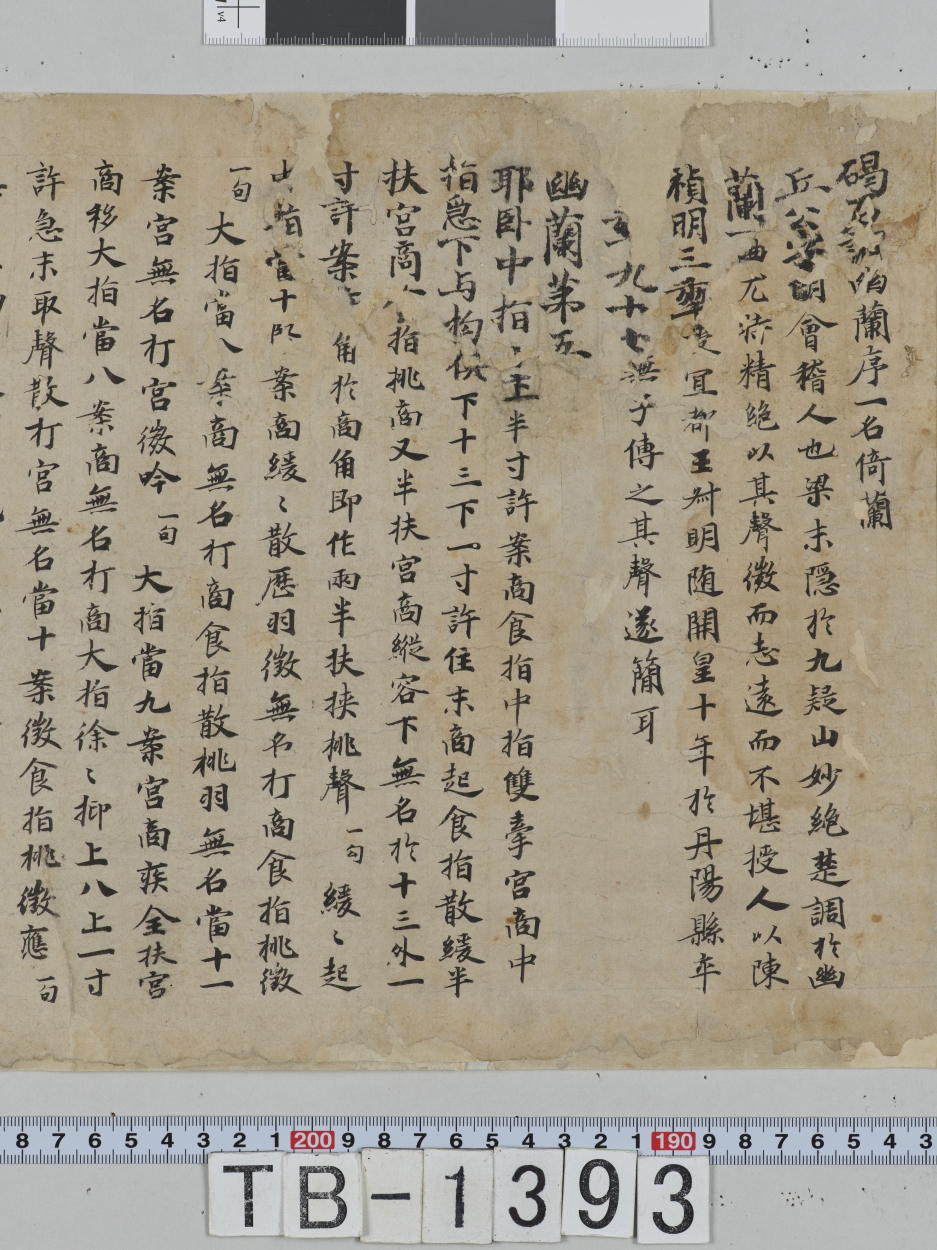 碣石調幽蘭序一名倚蘭
丘公字明會稽人也梁末隱於九疑山妙絕楚調於幽
蘭一曲尤特精絕以其聲微而志遠而不堪授人以陳
禎明三年授宜都王叔明隨開皇十年於丹陽縣卒
九十七無子傳之其聲遂簡耳
幽蘭第五
耶臥中指〻半寸許案商食指中指雙牽宮商中
指急下与拘俱下十三下一寸許住末商起食指散緩半
扶宮商食指挑商又半扶宮商縱容下無名於十三外一
寸許案 角於商角即作兩半扶挾挑聲一句 緩〻起
指當十 案商緩〻散歷羽徵無名打商食指挑徵
一句 大指當八案商無名打商食指散挑羽無名當十一
案宮無名打宮徵吟一句 大指當九案宮商疾全扶宮
商移大指當八案商無名打商大指徐〻抑上八上一寸
許急末取聲散打宮無名當十案徵食指挑徵應一句
8 7 6 5 4 3 2 1 200 9 8 7 6 5 4 3 2 1 190 9 8 7 6 5 4 3
TB-1393